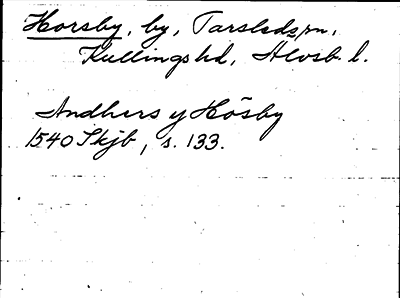 Horsby, by, Tarsledspn,
Kullings hd, Älvsb. l.
Andhers y Hösby
1540 Skjb, s. 133.